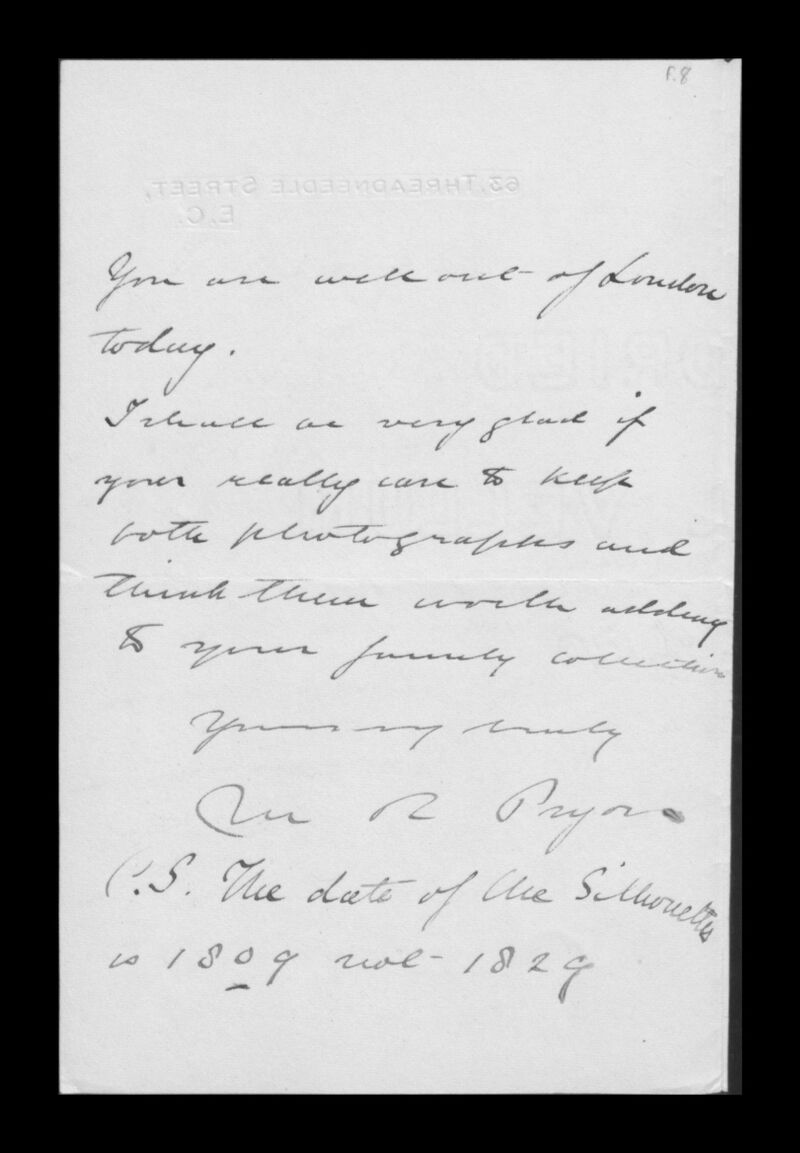 P.8
63, THREADNEEDLE STREET,
E.C.
You are well out of London
today.
I shall be very glad if
you really care to keep
both photographs and
think them worth adding
to your family collection
Yours very truly
M R Pryor
P.S. The date of the Silhouettes
is 1809 not 1829